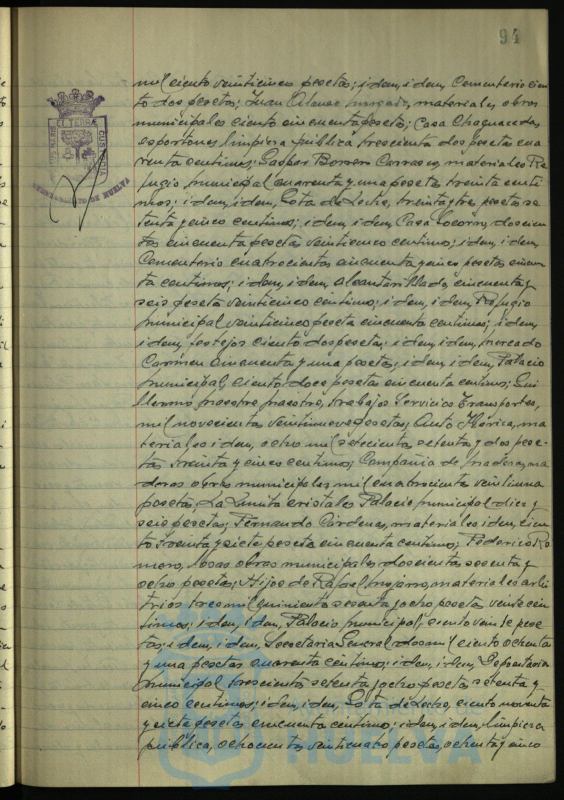 94
mil ciento veinticinco pesetas; idem, idem, Cementerio cien
to dos pesetas; Juan materiales obras
municipales ciento cincuenta pesetas; Casa
esportones limpieza pública trescientas dos pesetas cua
renta centimos; Gaspar Borrero Carrasco, materiales Re
fugio municipal cuarenta y una pesetas treinta centi
mos; idem, idem, Gota de Leche, treinta y tres pesetas se
tenta y cinco centimos; idem, idem, Casa Socorro, doscien
tas cincuenta pesetas veinticinco centimos; idem, idem,
Cementerio cuatrocientas cincuenta y cinco pesetas cincuen
ta centimos; idem, idem, alcantarillado, cincuenta y
seis pesetas veinticinco centimos; idem, idem, Refugio
municipal veinticinco pesetas cincuenta centimos; idem,
idem, festejos ciento dos pesetas; idem, idem, mercado
Carmen cincuenta y una pesetas; idem, idem, Palacio
municipal, ciento doce pesetas cincuenta centimos; Gui
llermo maestre maestre, trabajos Servicios Transportes,
mil novecientas veintinueve pesetas; Auto Ibérica, ma
teriales idem, ocho mil setecientas setenta y dos pese
tas treinta y cinco centimos; Compañia de maderas, ma
deras obras municipales mil cuatrocientas veintiuna
pesetas, La Lunita cristales Palacio municipal diez y
seis pesetas; Fernando Cárdenas, materiales idem, cien
to treinta y siete pesetas cincuenta centimos; Federico Ro
mero, losas obras municipales doscientas sesenta y
ocho pesetas; Hijos de Rafael mojarro, materiales arbi
trios tres mil quinientas sesenta y ocho pesetas veinte cen
timos; idem, idem, Palacio municipal, ciento veinte pese
tas; idem, idem, Secretaria General dos mil ciento ochenta
y una pesetas cuarenta centimos; idem, idem, Depositaria
municipal trescientas setenta y ocho pesetas setenta y
cinco centimos; idem, idem, Gota de Leche, ciento noventa
y siete pesetas cincuenta centimos; idem, idem, limpieza
pública, ochocientas veinticuatro pesetas ochenta y cinco
HUELVA